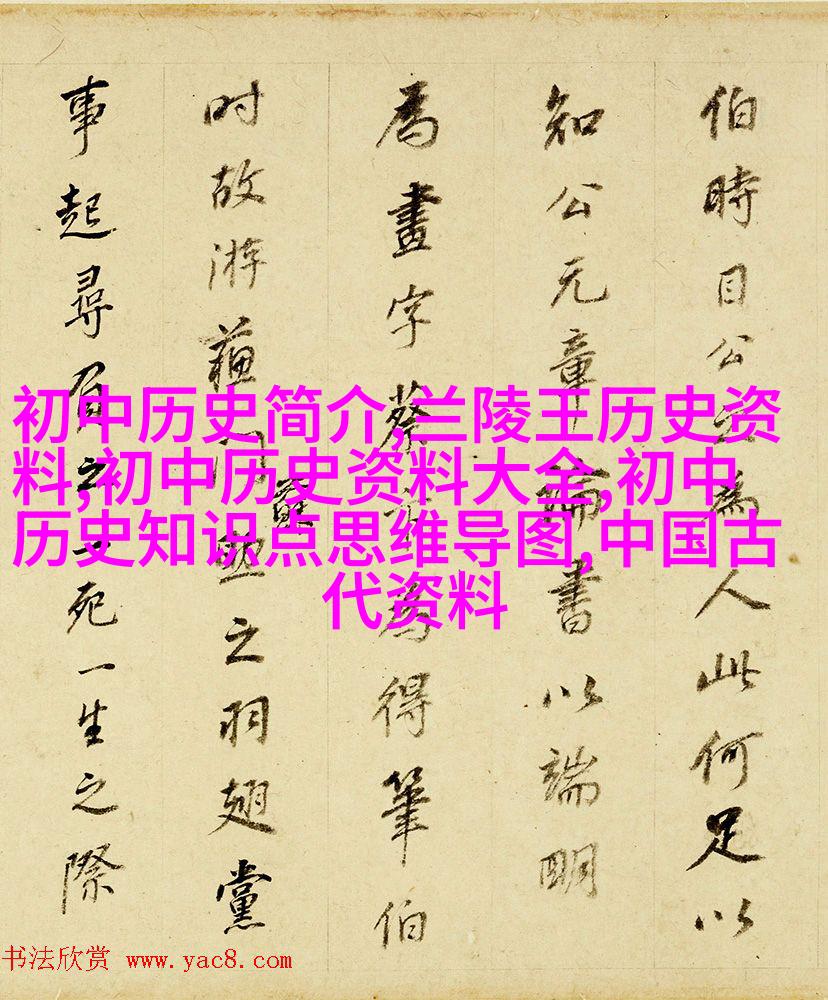 伯時目公之為人此何足以
知公元章論書以端明
為畫字蔡為得筆伯
时故游蘇門之羽翅黨
事起尋之一死一生之際
初中历史简介,兰陵王历史资
料,初中历史资料大全,初中
历史知识点思维导图,中国古
代资料
书法欣赏 www.yac8.com